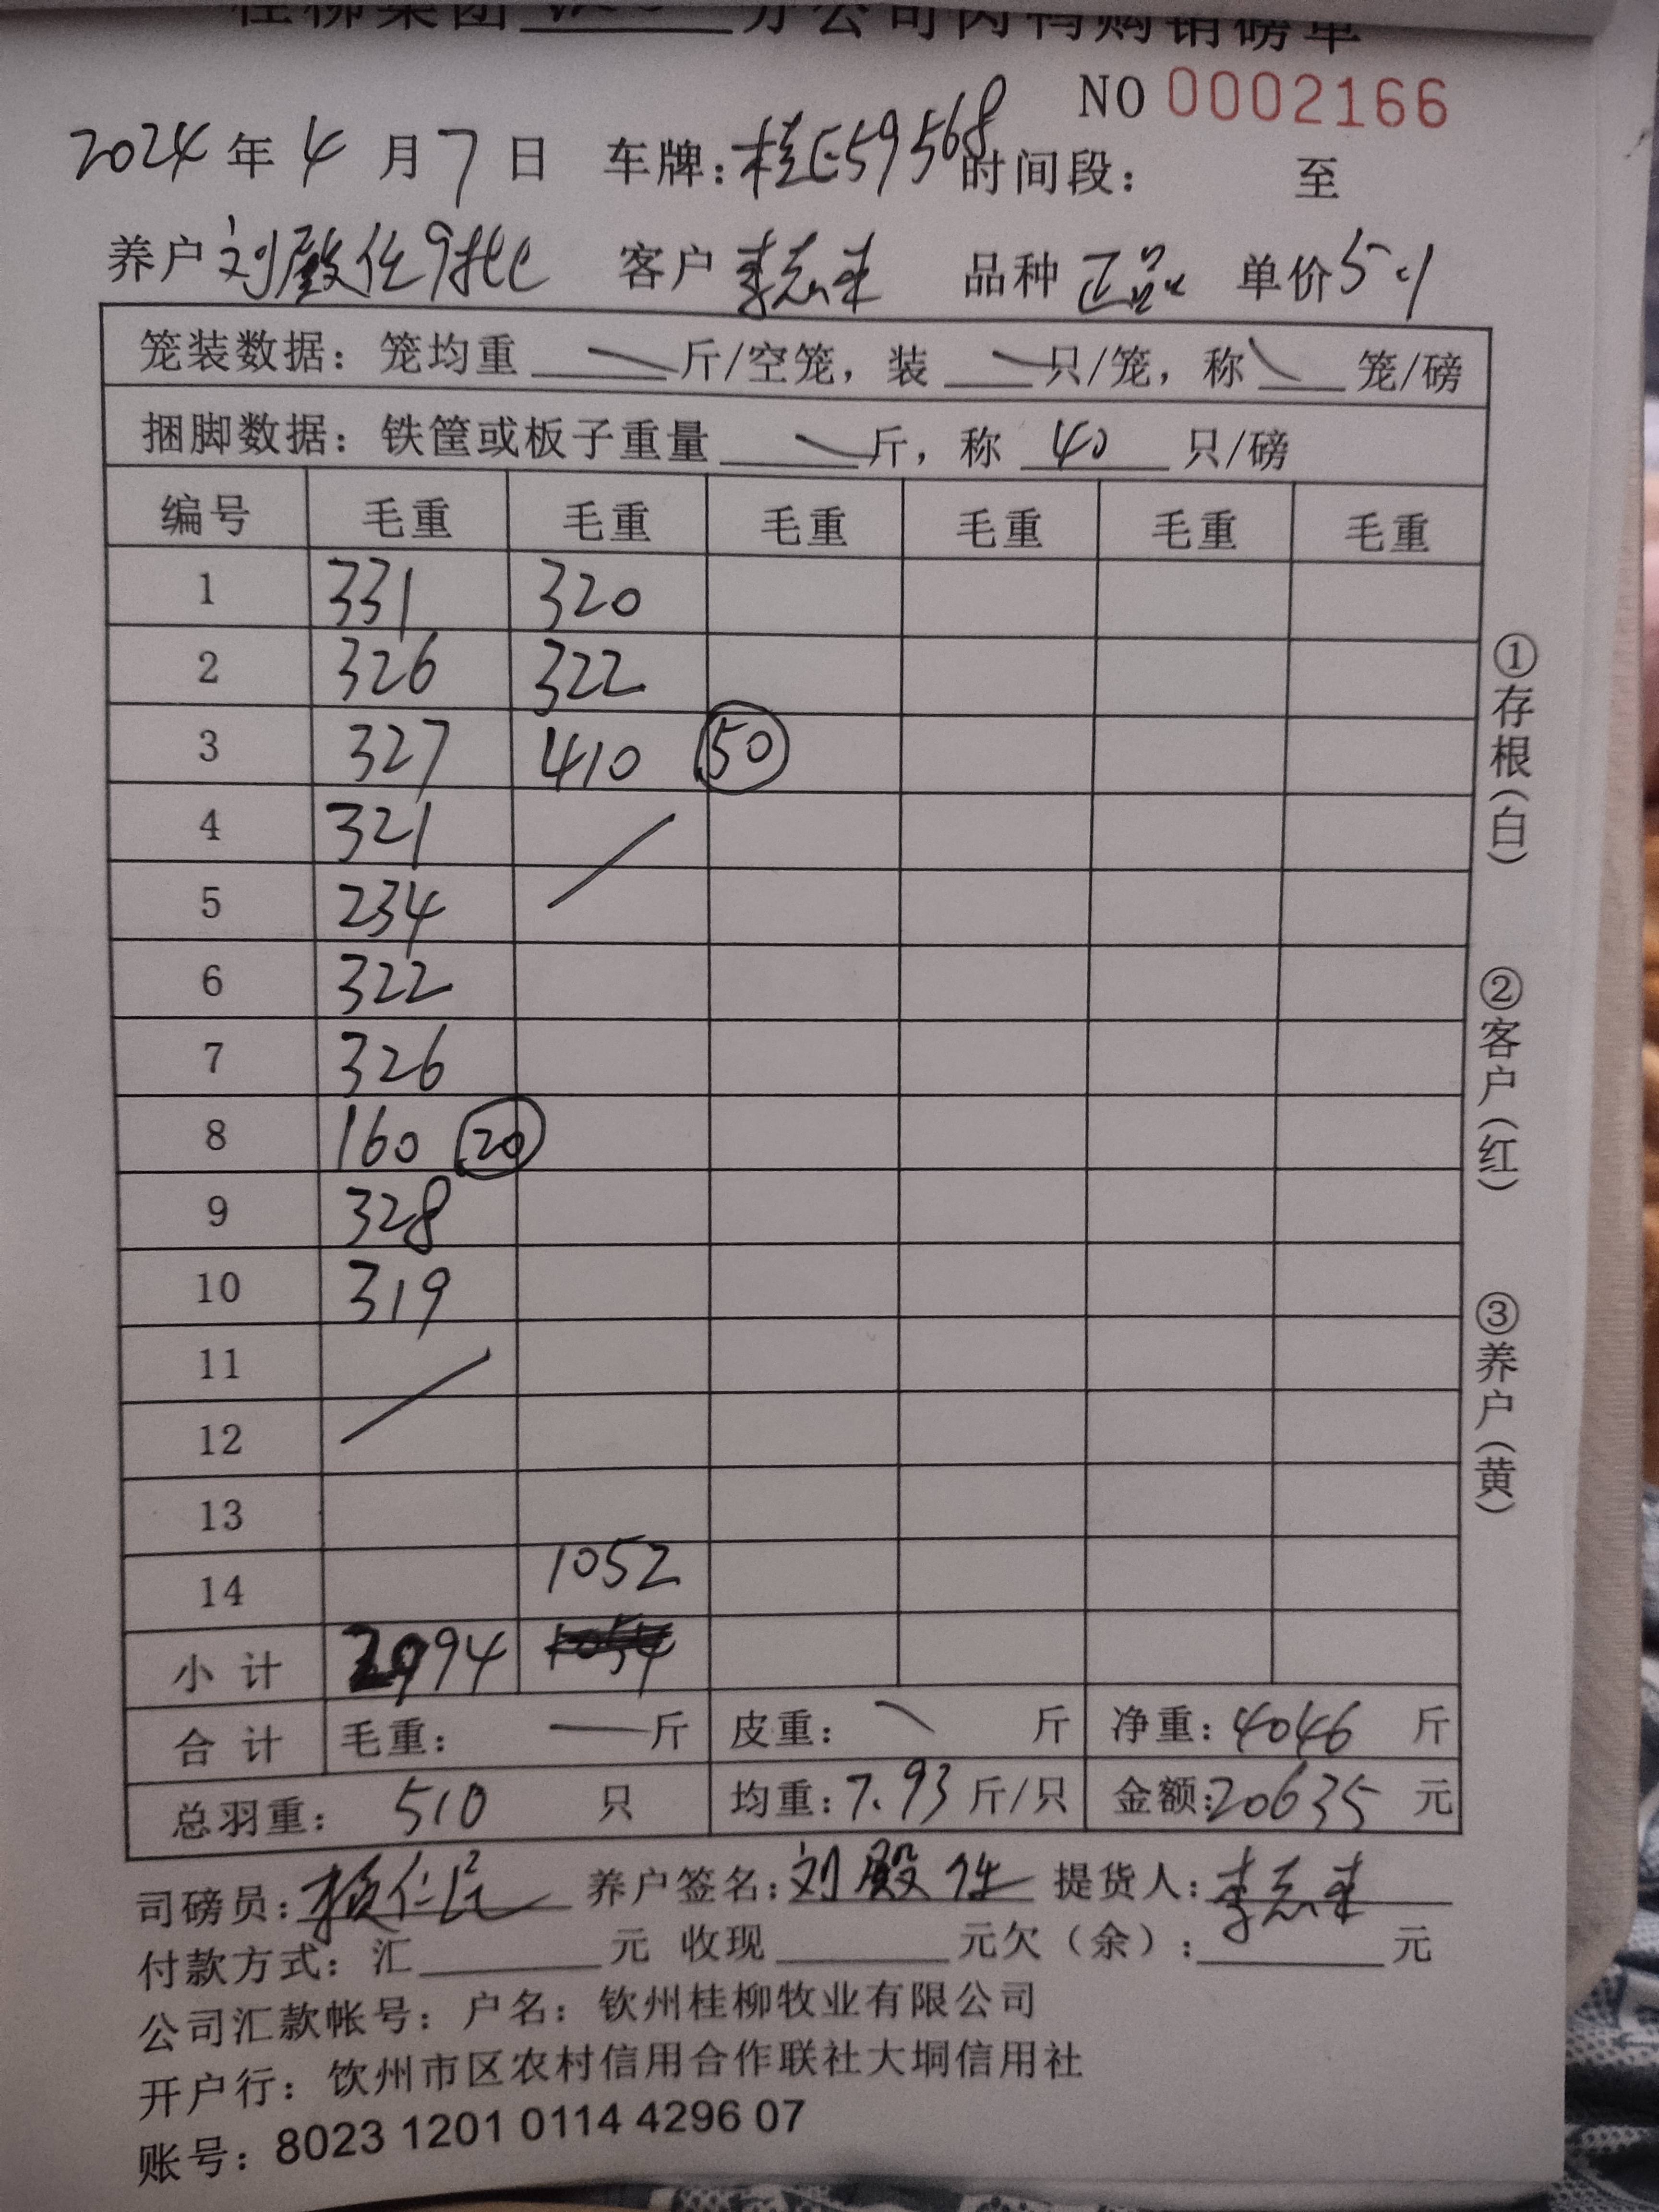 桂柳集团 分公司肉鸭购销磅单
NO 0002166
2024年4月7日 车牌:桂E59568 时间段: 至
养户 刘殿任9批 客户 李志来 品种 正品 单价5.1
笼装数据: 笼均重 斤/空笼, 装 只/笼, 称 笼/磅
捆脚数据: 铁筐或板子重量 斤, 称 40 只/磅
编号 毛重 毛重 毛重 毛重 毛重 毛重
1 331 320
2 326 322
3 327 410 50
4 321
5 234
6 322
7 326
8 160 20
9 328
10 319
11
12
13
14 1052
小计 2994 1054
合计 毛重: 斤 皮重: 斤 净重: 4046 斤
总羽重: 510 只 均重: 7.93 斤/只 金额: 20635 元
司磅员: 养户签名: 刘殿任 提货人: 李志来
付款方式: 汇 元 收现 元欠(余): 元
公司汇款帐号: 户名: 钦州桂柳牧业有限公司
开户行: 钦州市区农村信用合作联社大垌信用社
账号: 8023 1201 0114 4296 07
①存根(白)
②客户(红)
③养户(黄)